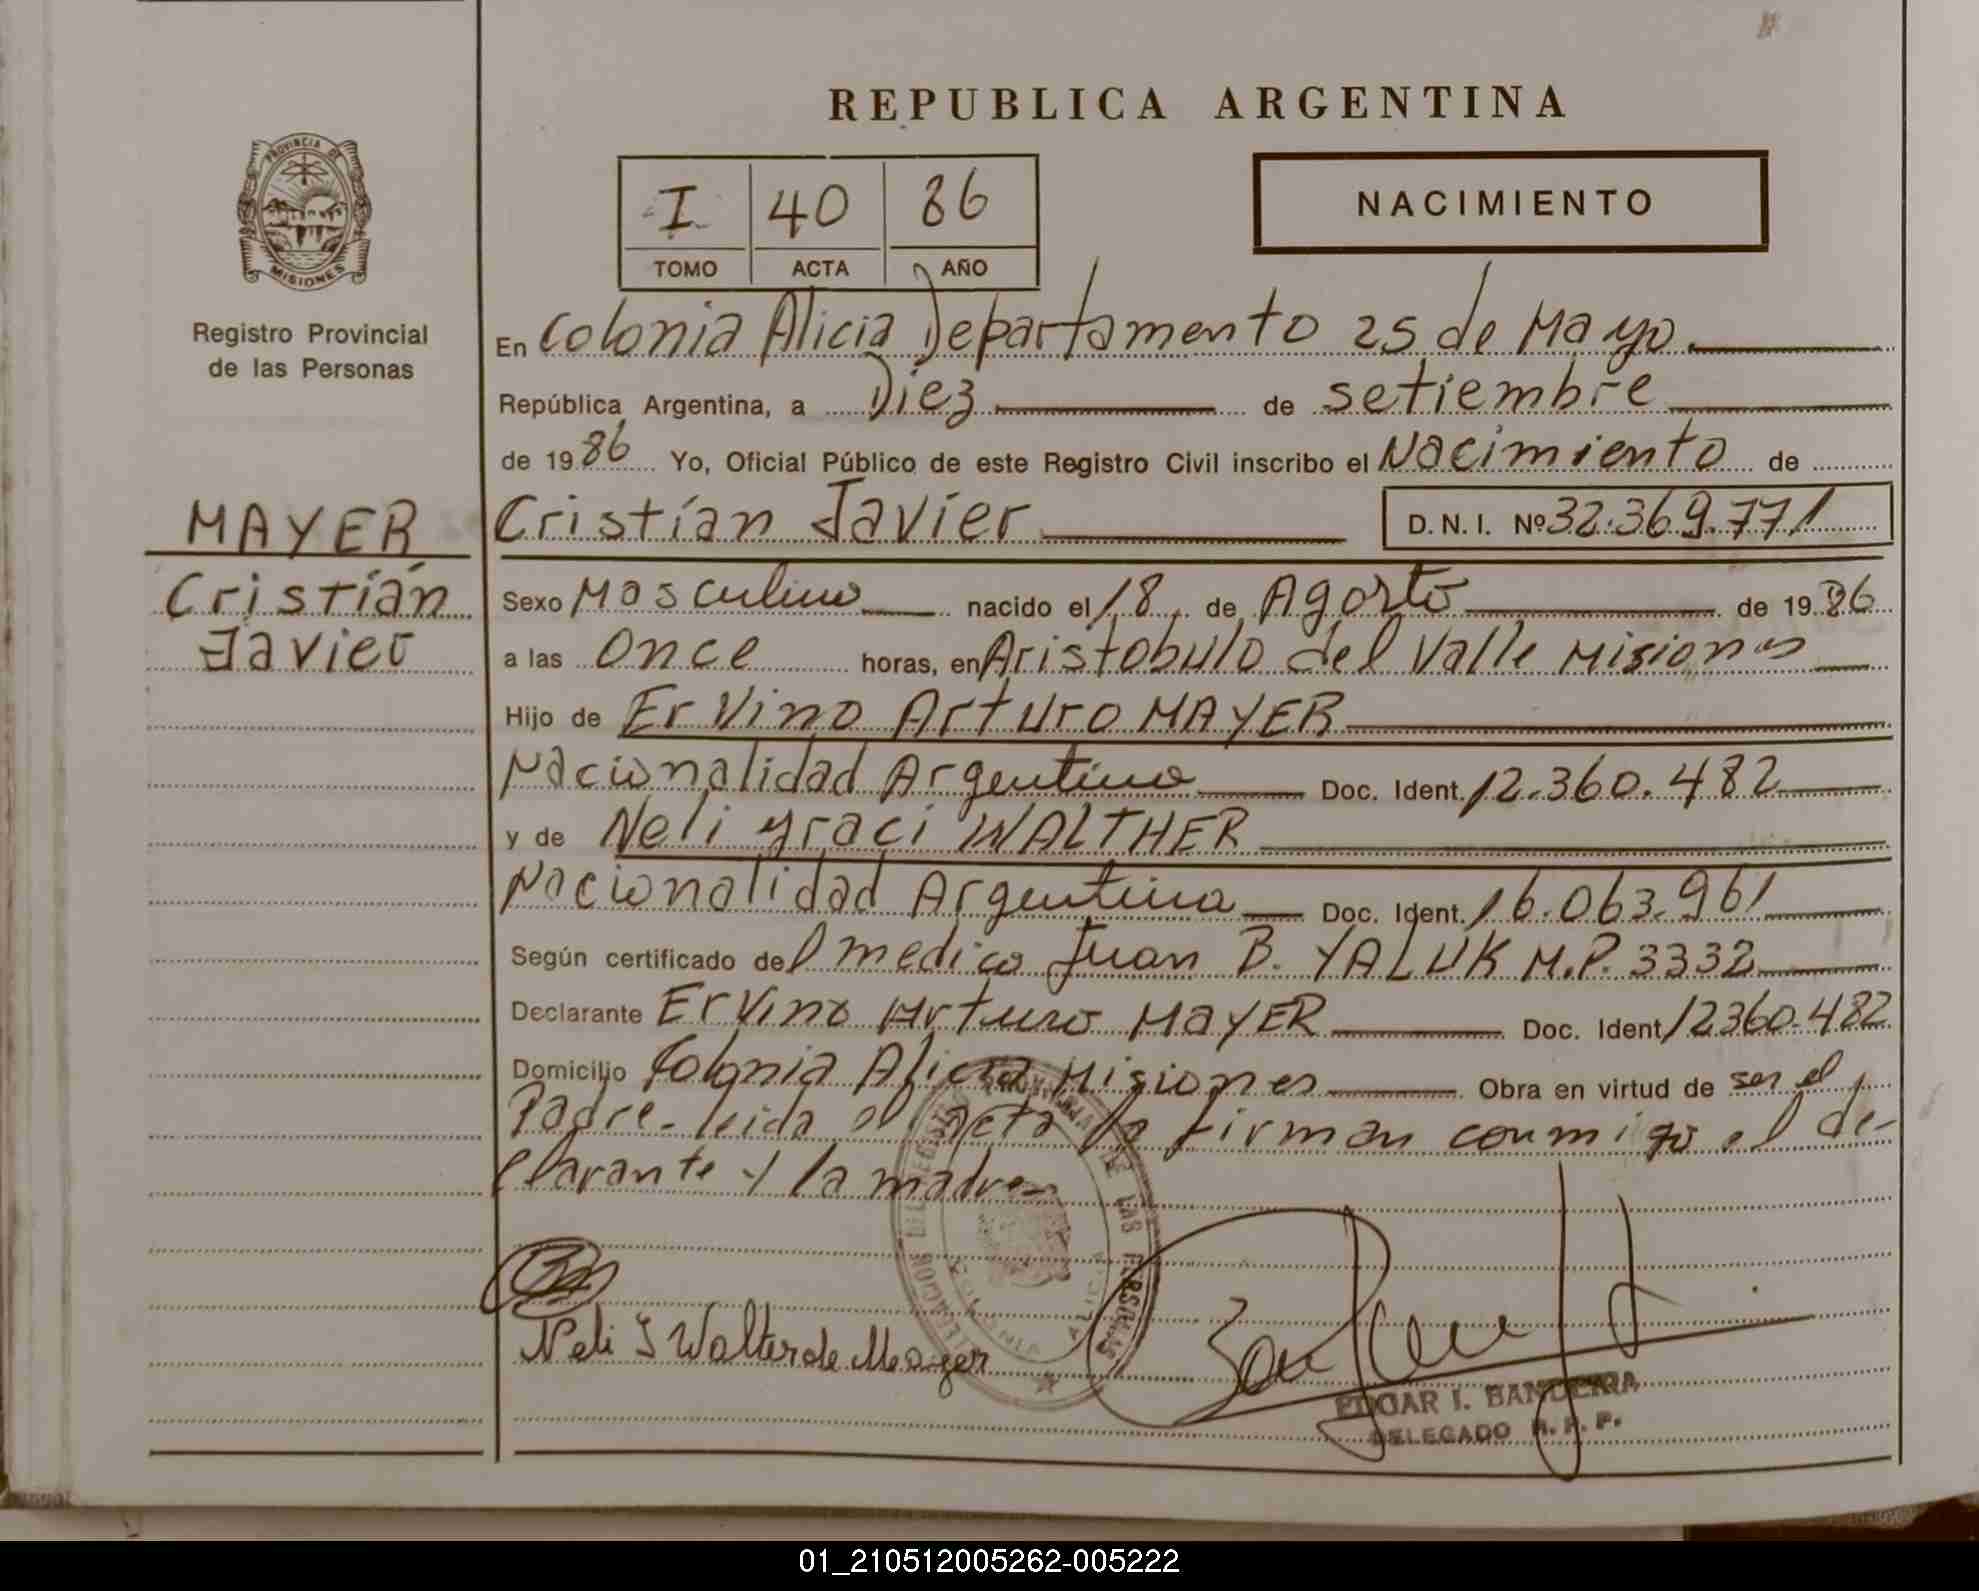 REPUBLICA ARGENTINA
PROVINCIA DE
MISIONES
Registro Provincial
de las Personas
I 40 86
TOMO ACTA AÑO
NACIMIENTO
En Colonia Alicia Departamento 25 de Mayo.
República Argentina, a Diez de setiembre
de 1986 Yo, Oficial Público de este Registro Civil inscribo el Nacimiento de
MAYER
Cristían
Javier
Cristían Javier D.N.I. Nº 32.369.771
Sexo Masculino nacido el 18 de Agosto de 1986
a las once horas, en Aristobulo del Valle Misiones
Hijo de Ervino Arturo MAYER
Nacionalidad Argentino Doc. Ident. 12.360.482
y de Neli Yraci WALTHER
Nacionalidad Argentina Doc. Ident. 16.063.961
Según certificado del medico Juan B. YALUK M.P. 3332
Declarante Ervino Arturo MAYER Doc. Ident. 12360.482
Domicilio Colonia Alicia Misiones Obra en virtud de ser el
Padre. leida el acta la firman conmigo el de-
clarante y la madre
Neli I Walter de Mayer
DE LAS PERSONAS
COLONIA ALICIA
EDGAR I. BANDEIRA
DELEGADO R. P. P.
01_210512005262-005222